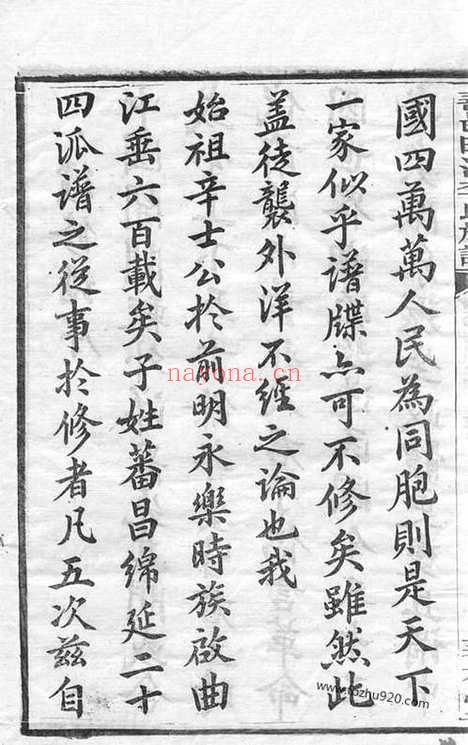 國四萬萬人民為同胞則是天下
一家似乎譜牒亦可不修矣雖然此
蓋徒襲外洋不經之論也我
始祖辛士公於前明永樂時族啟曲
江垂六百載矣子姓蕃昌綿延二十
四派譜之從事於修者凡五次茲自
nayona.cn
www.rozhu920.com